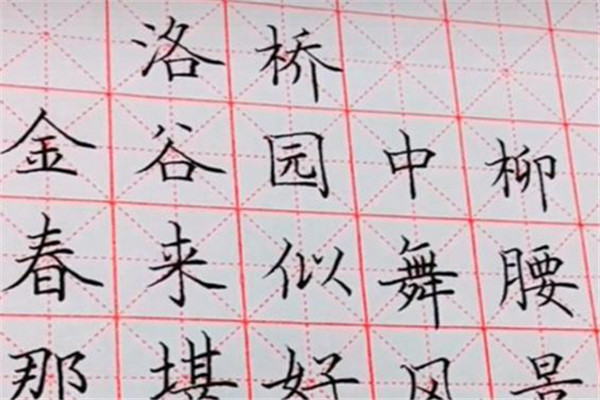 洛桥
金谷园中柳
春来似舞腰
那堪好风景